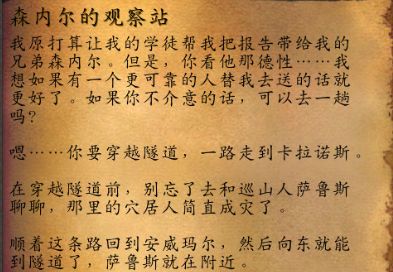 森内尔的观察站
我原打算让我的学徒帮我把报告带给我的
兄弟森内尔。但是，你看他那德性……我
想如果有一个更可靠的人替我去送的话就
更好了。如果你不介意的话，可以去一趟
吗？
嗯……你要穿越隧道，一路走到卡拉诺斯。
在穿越隧道前，别忘了去和巡山人萨鲁斯
聊聊，那里的穴居人简直成灾了。
顺着这条路回到安威玛尔，然后向东就能
到隧道了，萨鲁斯就在附近。